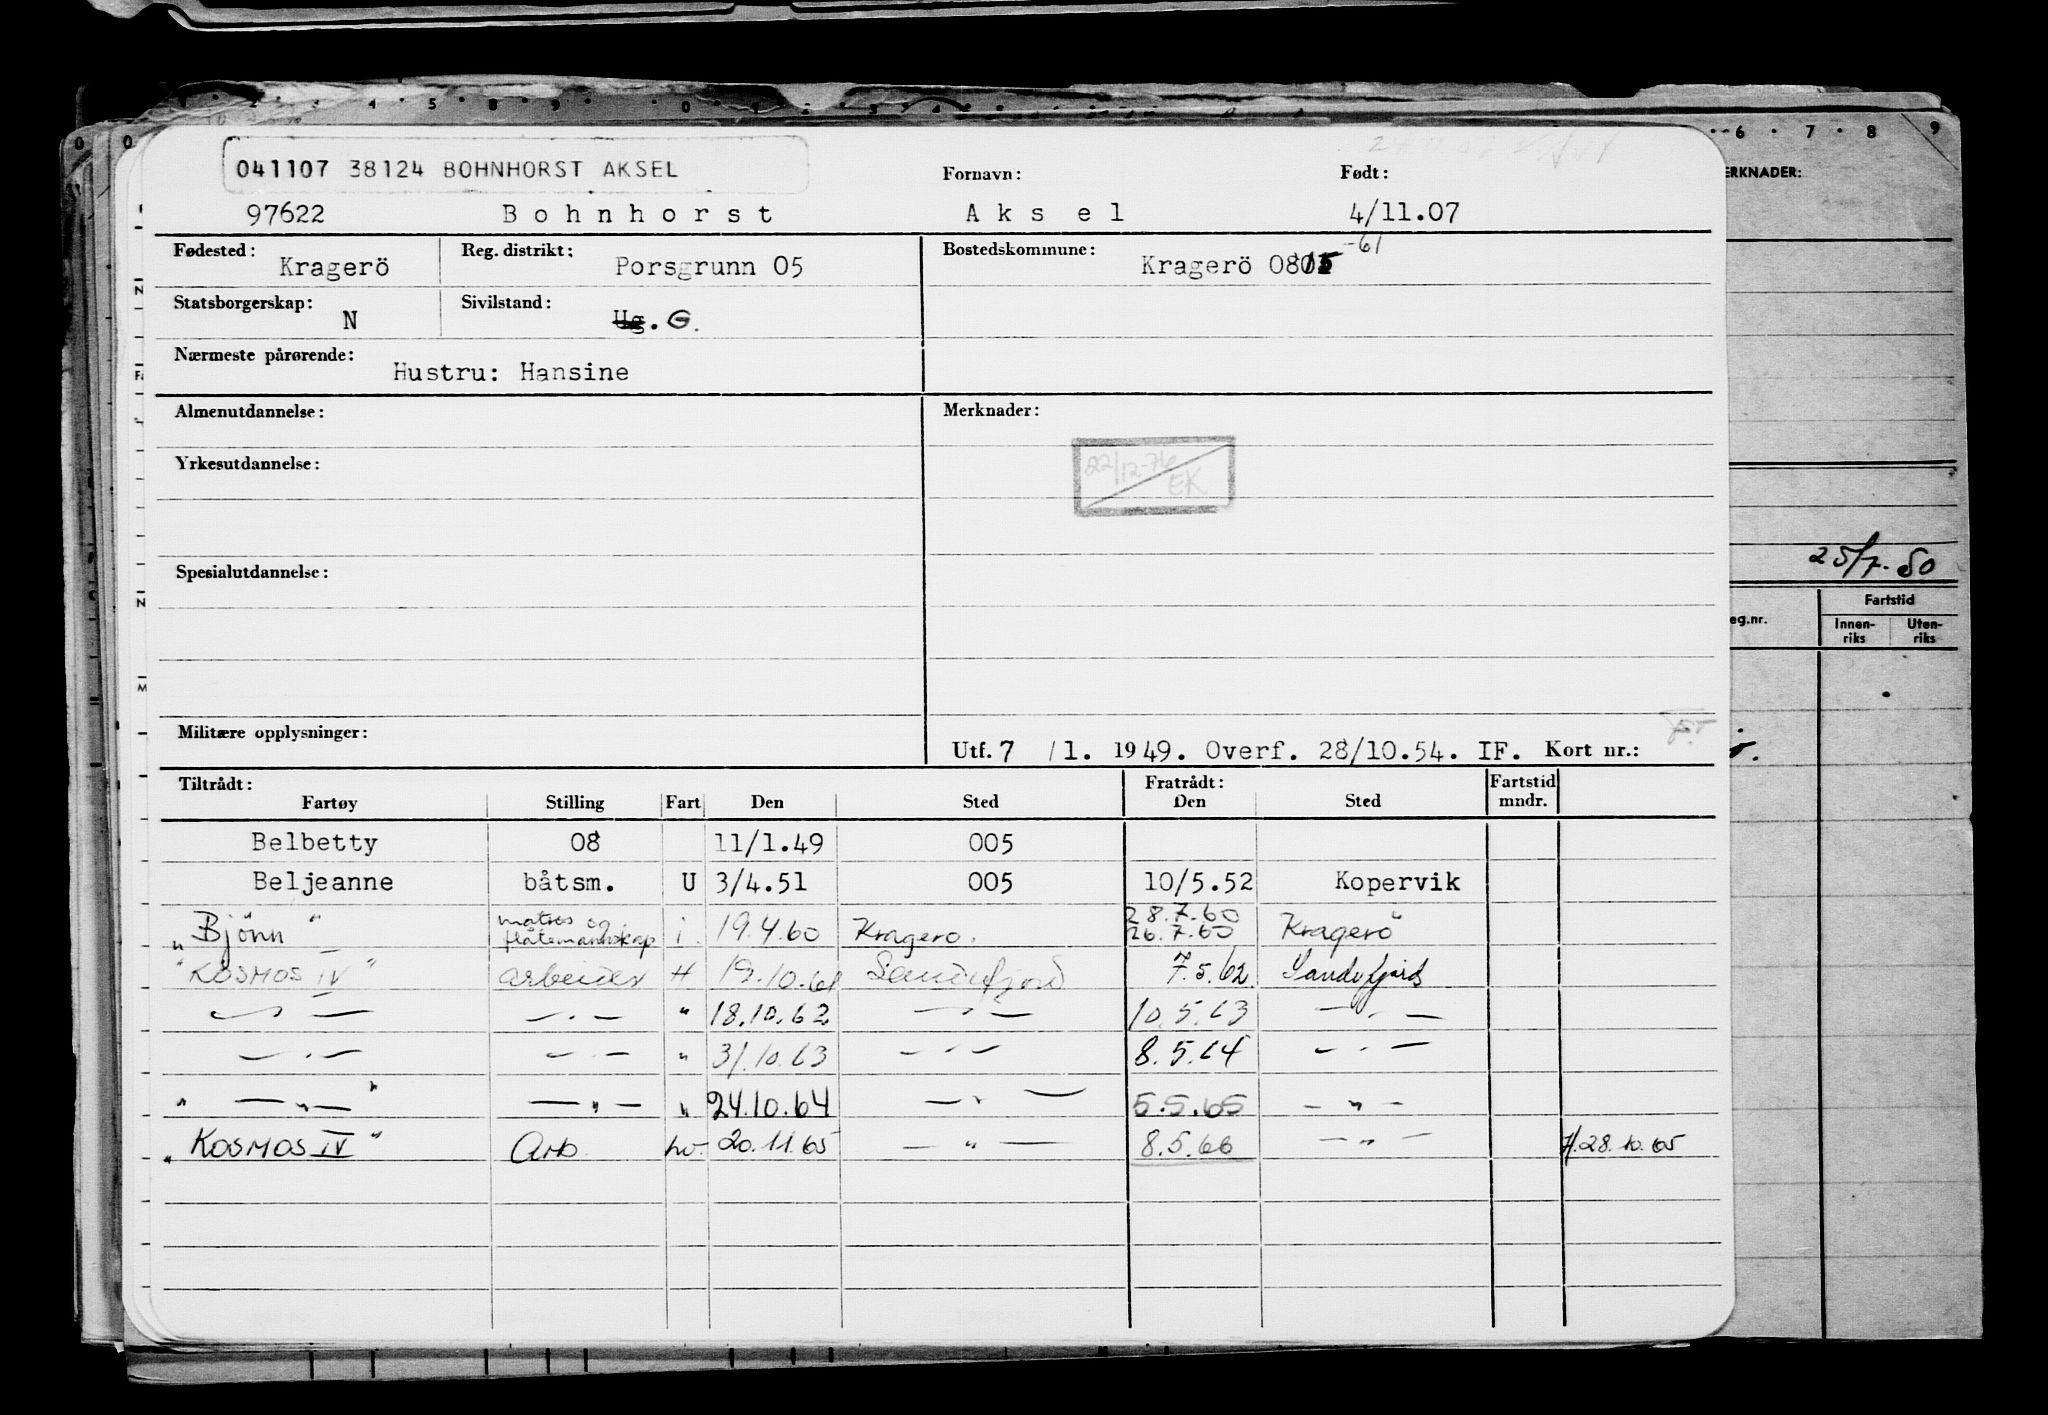 041107 38124 BOHNHORST AKSEL
Fornavn: Født:
97622 Bohnhorst Aksel 4/11.07
Fødested: Kragerö Reg. distrikt: Porsgrunn 05 Bostedskommune: Kragerö 08015 -61
Statsborgerskap: N Sivilstand: Ug. G.
Nærmeste pårørende: Hustru: Hansine
Almenutdannelse: Merknader:
22/12-76 EK
Yrkesutdannelse:
Spesialutdannelse:
Militære opplysninger:
Utf. 7 /1. 1949. Overf. 28/10.54. IF. Kort nr.:
Tiltrådt: Fratrådt: Fartstid mndr.
Fartøy Stilling Fart Den Sted Den Sted
Belbetty 08 11/1.49 005
Beljeanne båtsm. U 3/4.51 005 10/5.52 Kopervik
28.7.60
"Bjönn" matros og flåtemannskap i. 19.4.60 Kragerö. 26.7.60 Kragerö
"KOSMOS IV" arbeider H 19.10.61 Sandefjord 7.5.62 Sandefjord
— . — — . — " 18.10.62 — . — 10.5.63 — . —
— . — — . — " 31.10.63 — . — 8.5.64 — . —
" — " — " — " — " 24.10.64 — " — 5.5.65 — " —
"KOSMOS IV" Arb. hv. 20.11.65 — " — 8.5.66 — " — 7/.28.10.65
ERKNADER:
25/7.50
eg.nr. Fartstid
Innen-riks Uten-riks